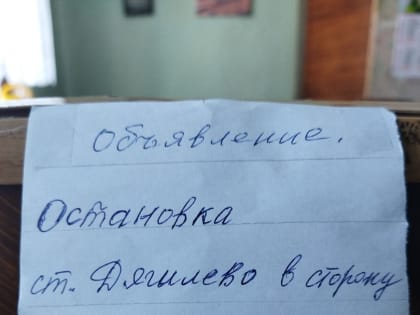 Объявление.
Остановка
ст. Дягилево в сторону